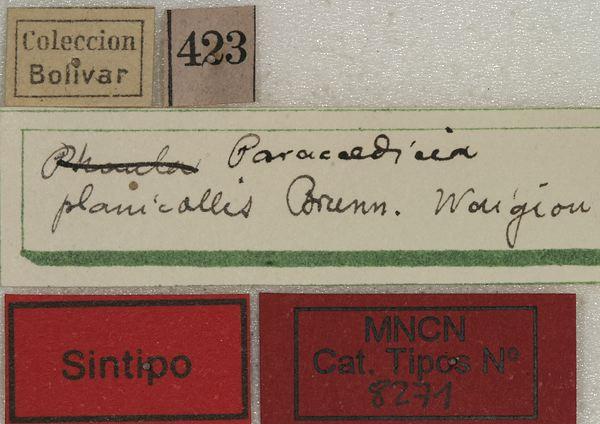 Coleccion
Bolivar
423
Phaula Paracaedicia
planicollis Brunn. Waigiou
Sintipo
MNCN
Cat. Tipos Nº
8271